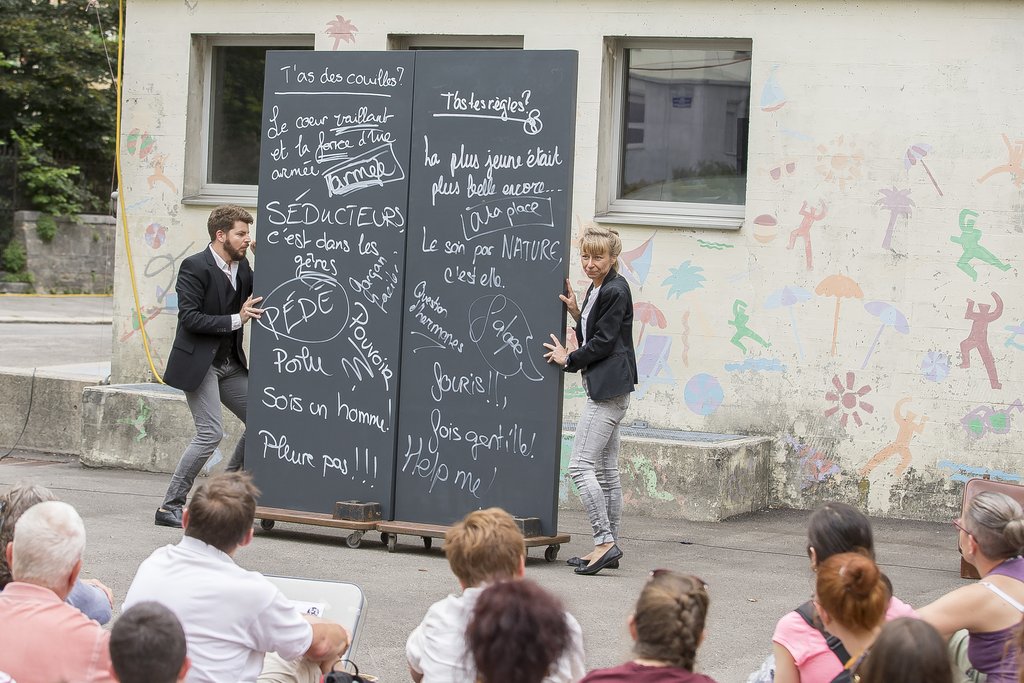 T'as des couilles?
Le cœur vaillant
et la force d'une
armée
armée
SÉDUCTEURS,
c'est dans les
gênes
garçon
facile
PÉDÉ
Pouvoir
Poilu
Sois un homme!
Pleure pas!!!
T'as tes règles?
La plus jeune était
plus belle encore...
À la place
Le soin par NATURE,
c'est elle.
Question
d'hormones
Salope
Souris!!,
Sois gentille!
Help me!